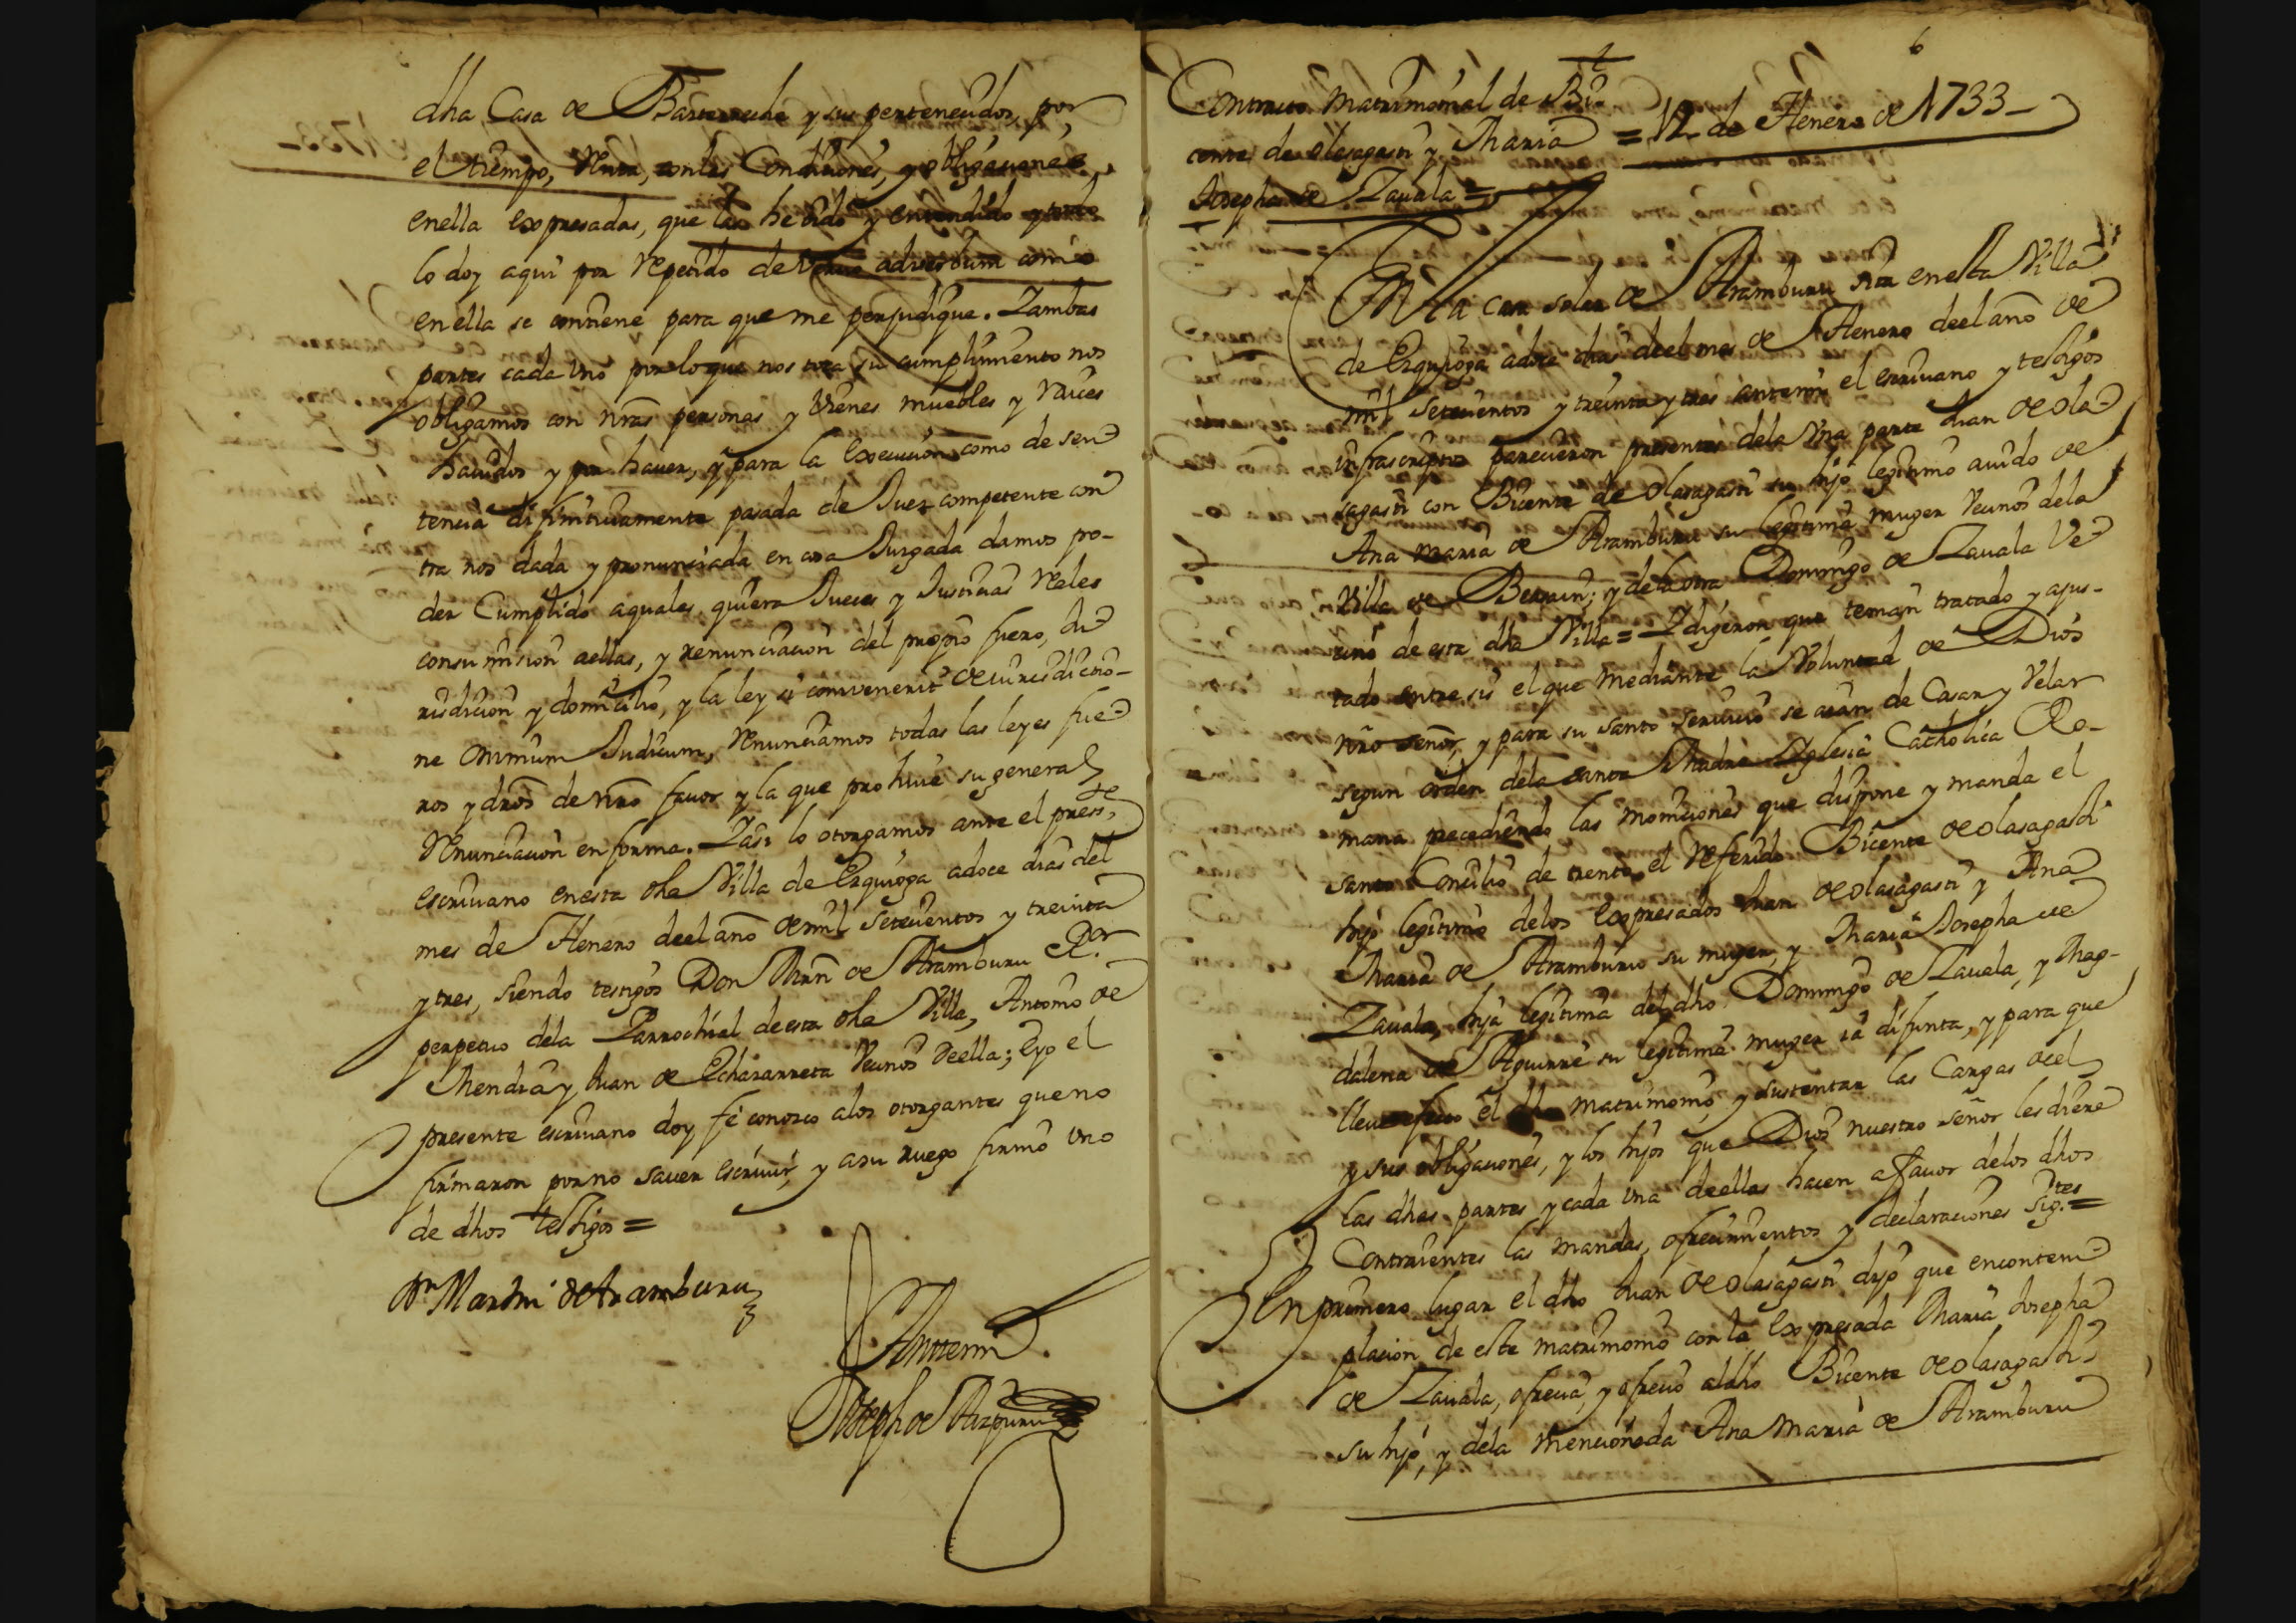 dha Casa de Barrenechea y sus pertenecidos, por
el tiempo, renta, con las Condiciones, y obligaciones
en ella expresadas, que las he oido y entendido y todo
lo doy aqui por repetido de verbo adverbum como
en ella se contiene para que me perjudique. Y ambas
partes cada uno por lo que nos toca su cumplimiento nos
obligamos con nras personas y vienes muebles y raices
havidos y por haver, y para la execucion como de sen
tencia difinitivamente pasada de Juez competente con
tra nos dada y pronunciada en cosa Juzgada damos po-
der Cumplido aquales quiera Jueces y Justicias reales
con sumision aellas, y renunciacion del propio fuero, Ju
risdicion y domicilio, y la ley si convenerit de iurisdictio-
ne omnium Judicum, renunciamos todas las leyes fue
ros y dros de nro favor y la que prohive su general
renunciacion en forma. Y asi lo otorgamos ante el presste
escrivano en esta dha Villa de Ezquioga adoce dias del
mes de Henero de el año de mil setecientos y treinta
y tres, siendo testigos Don Mrn de Aramburu Ror
perpetuo dela Parrochial de esta dha Villa, Antonio de
Mendia y Juan de Echazarreta vecinos de ella; E yo el
presente escrivano doy fe conozco alos otorgantes que no
firmaron por no saver escrivir, y asu ruego firmó uno
de dhos testigos =
Dn Martin de Aramburu
Anttemi
Joseph de Aizpuru
6
Contrato Matrimonial de Bi-
cente de Olasagasti y Maria = 12 de Henero de 1733
Josepha de Zavala =
En la casa solar de Aramburu sita en esta Villa
de Ezquioga adoce dias de el mes de Henero de el año de
mil setecientos y treinta y tres ante mi el escrivano y testigos
infrascriptos parecieron presentes dela una parte Juan de Ola
sagasti con Bicente de Olasagasti su hijo legitimo avido de
Ana Maria de Aramburu su legitima muger vecinos dela
Villa de Beasain; y dela otra Domingo de Zavala ve
cino de esta dha Villa = Y digeron que tenian tratado y ajus-
tado entre si el que mediante la voluntad de Dios
nro señor, y para su santo servicio se aian de Casar y velar
segun orden dela santa Madre Yglesia Catholica Ro-
mana precediendo las moniciones que dispone y manda el
santo Concilio de trento el referido Bicente de Olasagasti
hijo legitimo delos expresados Juan de Olasagasti y Ana
Maria de Aramburu su muger, y Maria Josepha de
Zavala, hija legitima del dho Domingo de Zavala, y Mag-
dalena de Aguirre su legitima muger ia difunta, y para que
lleve efecto el dho matrimonio y sustentar las Cargas de el
y sus obligaciones, y los hijos que Dios nuestro señor les diere
las dhas partes y cada una de ellas hacen a favor delos dhos
Contraientes las mandas, ofrecimientos y declaraciones sigtes =
En primero lugar el dho Juan de Olasagasti dijo que en contem
placion de este matrimonio con la expresada Maria Josepha
de Zavala, ofrecia, y ofrecio aldho Bicente de Olasagasti
su hijo, y dela mencionada Ana Maria de Aramburu